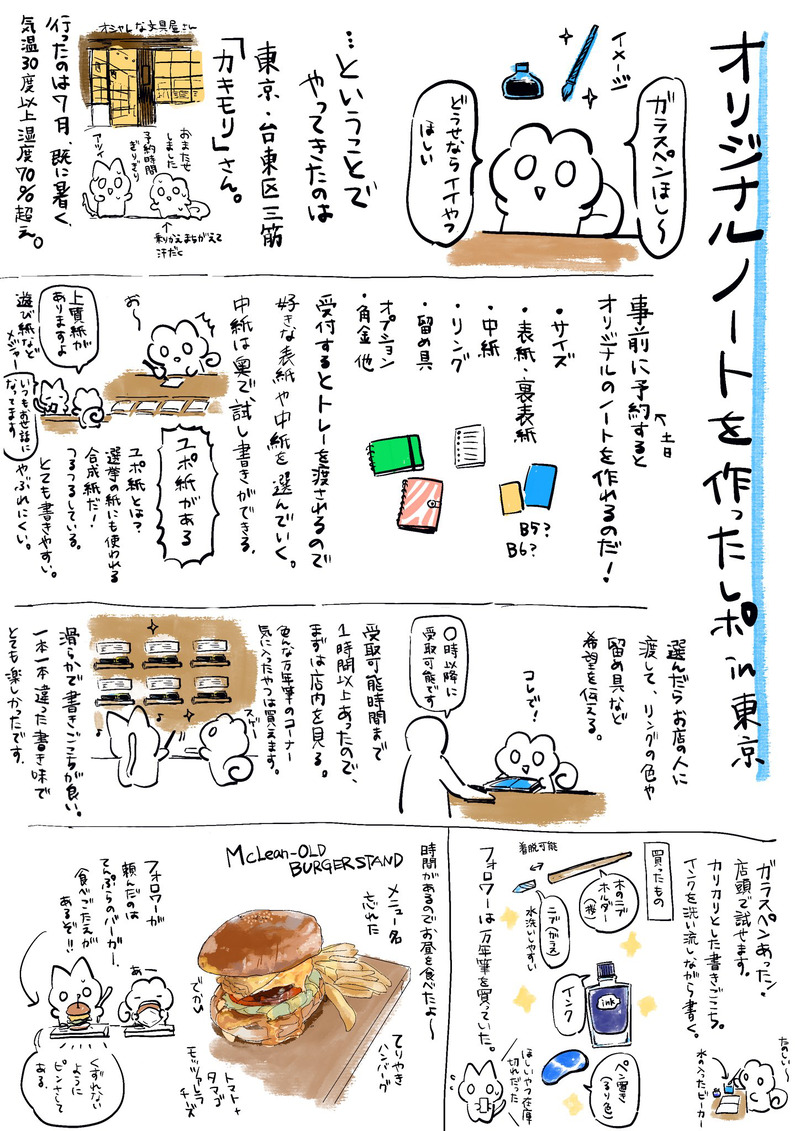 オリジナルノートを作ったレポ in 東京
ガラスペンほし〜
イメージ
どうせならイイやつ
ほしい
…ということで
やってきたのは
東京・台東区三筋
「カキモリ」さん。
オシャレな文具屋さん
おまたせ
しました
予約時間
ぎりぎり
アツィ
↑
乗りかえまちがえて
汗だく
行ったのは7月、既に暑く、
気温30度以上湿度70%超え。
事前に予約すると
↖土日
オリジナルのノートを作れるのだ!
・サイズ
・表紙・裏表紙
・中紙
・リング
・留め具
オプション
・角金 他
B5?
B6?
受付するとトレーを渡されるので
好きな表紙や中紙を選んでいく。
中紙は奥で、試し書きができる。
お〜
ユポ紙がある
ユポ紙とは?
選挙の紙にも使われる
合成紙だ!
つるつるしている。
とても書きやすい。
やぶれにくい。
上質紙が
ありますよ
遊び紙など
メジャー
いつもお世話に
なってます
選んだら お店の人に
渡して、リングの色や
留め具など
希望を伝える。
コレで!
〇時以降に
受取可能です
受取可能時間まで
1時間以上あったので、
まずは店内を見る。
色んな万年筆のコーナー
気に入ったやつは買えます。
ズー
滑らかで書きごこちが良い。
一本一本違った書き味で
とても楽しかったです。
ガラスペンあった!
店頭で試せます。
カリカリとした書きごこち。
インクを洗い流しながら書く。
たのしい〜
水の入ったビーカー
買ったもの
着脱可能
木のニブ
ホルダー
ニブ(ガラス)
水洗いしやすい
インク
ink
ペン置き
(るり色)
フォロワーは万年筆を買っていた。
ほしいやつ在庫
切れだった
時間があるのでお昼を食べたよ〜
McLean-OLD
BURGERSTAND
メニュー名
忘れた
でか
てりやき
ハンバーグ
トマト+
タマゴ
モッツァレラ
チーズ
フォロワーが
頼んだのは
てんぷらのバーガー。
食べごたえが
あるぞ!!
あー
くずれない
ように
ピンさして
ある。